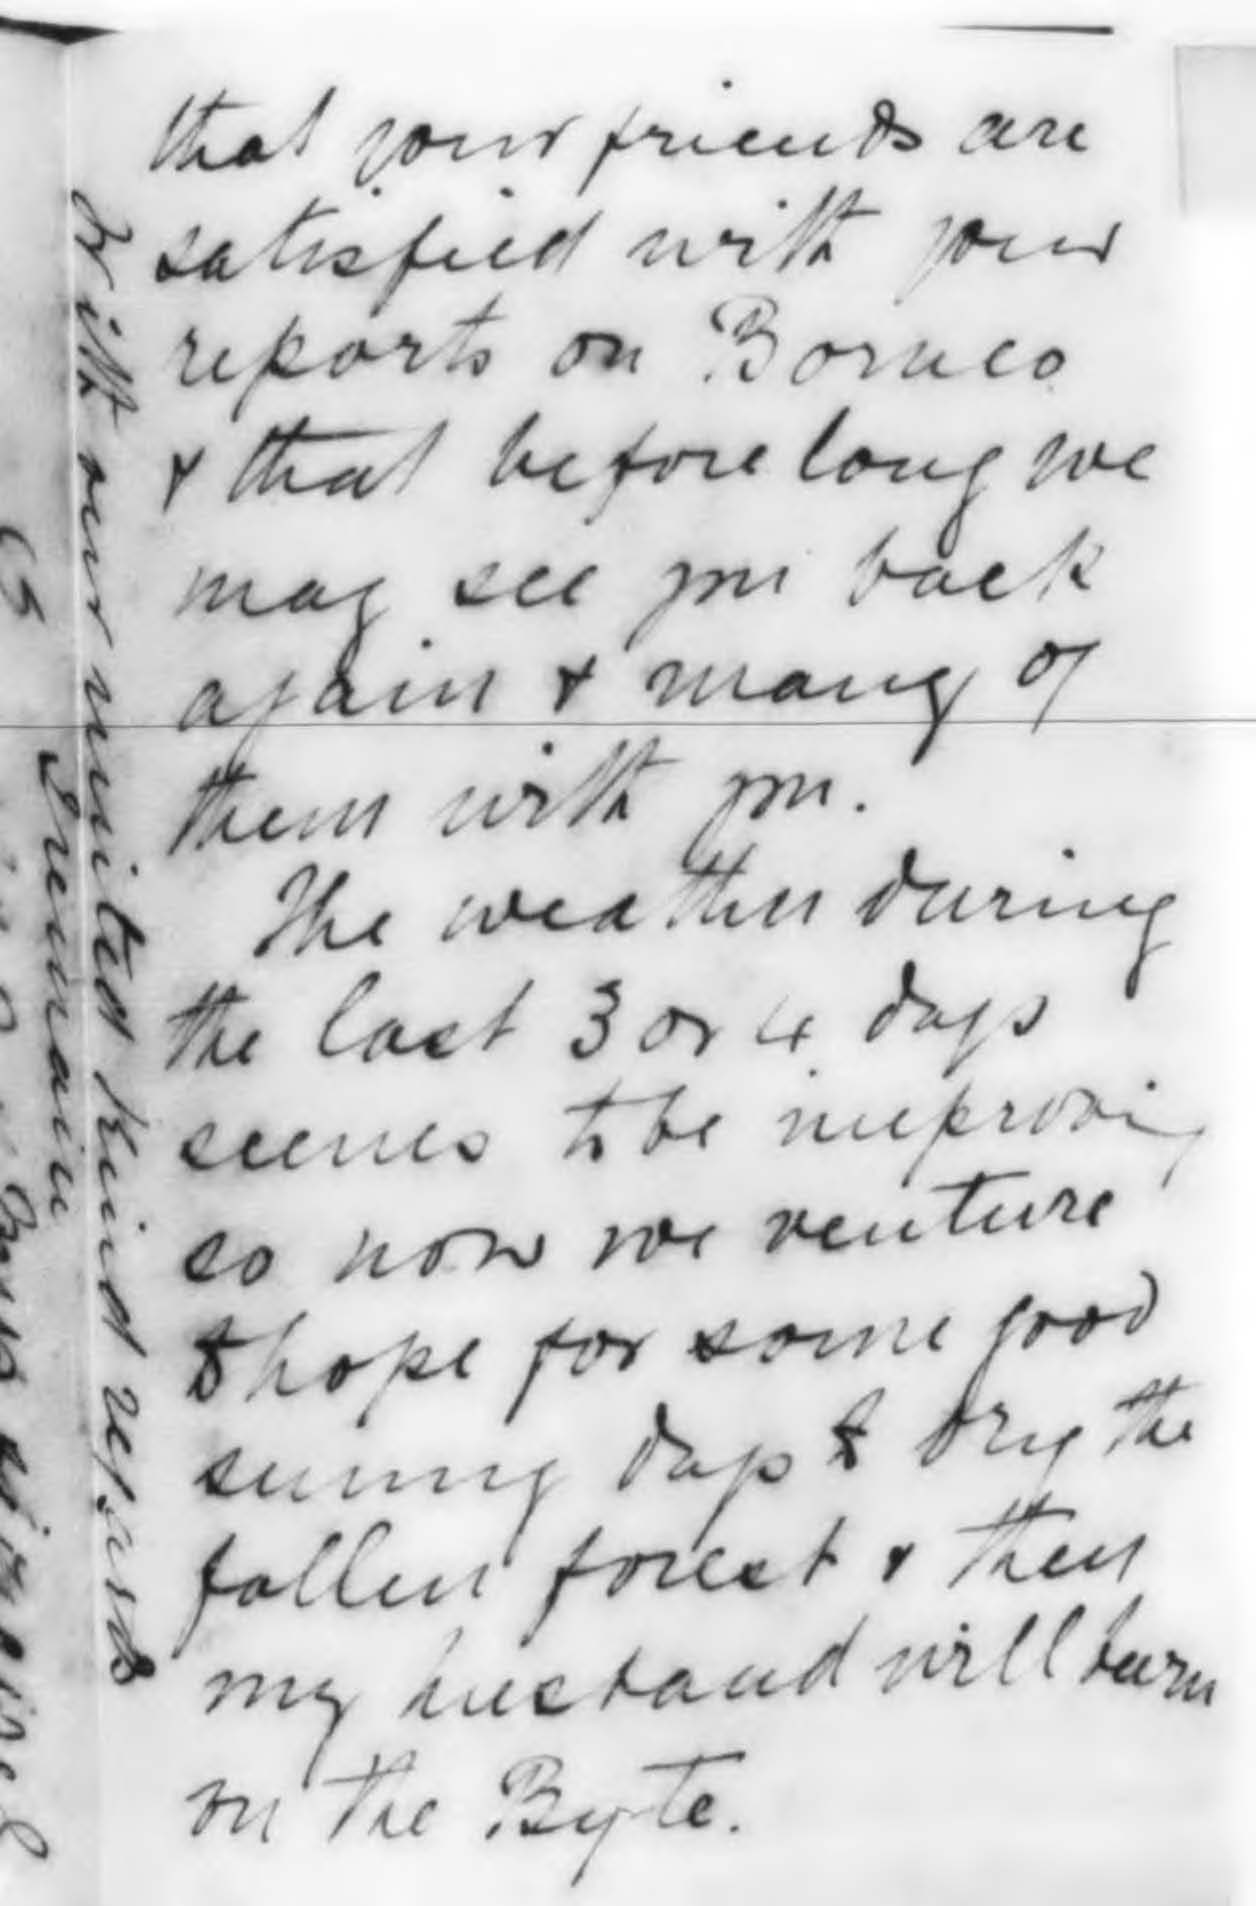 that your friends are
satisfied with your
reports on Borneo
& that before long we
may see you back
again & many of
them with you.
The weather during
the last 3 or 4 days
seems to be improving
so now we venture
to hope for some good
sunny days to dry the
fallen forest & then
my husband will turn
on the Byte.
With our united kind regards
I remain